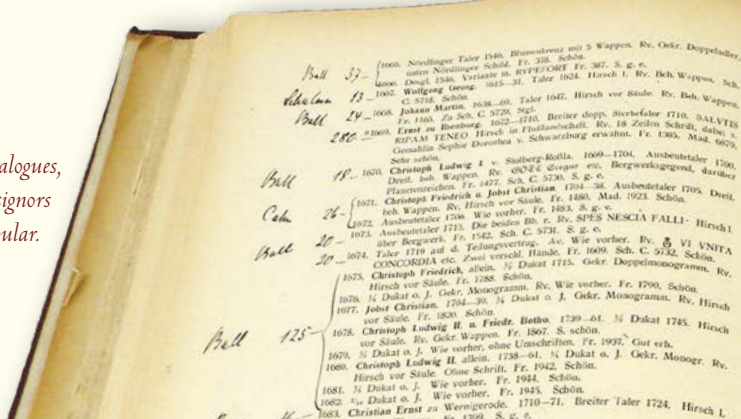 alogues,
signors
ular.
Ball 37 – 1665. Nördlinger Taler 1546. Blumenkreuz mit 5 Wappen. Rv. Gekr. Doppeladler,
unten Nördlinger Schild. Fr. 378. Schön.
1666. Desgl. 1546. Variante m. RVPEFORT Fr. 387. S. g. e.
Schulman 13 – 1667. Wolfgang Georg. 1615–31. Taler 1624. Hirsch l. Rv. Beh. Wappen. Sch.
C. 5718. Schön.
Ball 24 – 1668. Johann Martin. 1638–69. Taler 1647. Hirsch vor Säule. Rv. Beh. Wappen.
Fr. 1165. Zu Sch. C. 5729. Stgl.
280 – *1669. Ernst zu Ilsenburg. 1672–1710. Breiter dopp. Sterbetaler 1710. SALVTIS
RIPAM TENEO Hirsch in Flußlandschaft. Rv. 18 Zeilen Schrift, dabei s.
Gemahlin Sophie Dorothea v. Schwarzburg erwähnt. Fr. 1365. Mad. 6679.
Sehr schön.
Ball 18 – 1670. Christoph Ludwig I v. Stolberg-Roßla. 1669–1704. Ausbeutetaler 1700.
Dreif. beh. Wappen. Rv. etc. Bergwerksgegend, darüber
Planetenzeichen. Fr. 1477. Sch. C. 5730. S. g. e.
Cahn 26 – 1671. Christoph Friedrich u. Jobst Christian. 1704–38. Ausbeutetaler 1705. Dreif.
beh. Wappen. Rv. Hirsch vor Säule. Fr. 1480. Mad. 1923. Schön.
1672. Ausbeutetaler 1706. Wie vorher. Fr. 1483. S. g. e.
Ball 20 – 1673. Ausbeutetaler 1715. Die beiden Bb. r. Rv. SPES NESCIA FALLI · Hirsch l.
über Bergwerk. Fr. 1542. Sch. C. 5731. S. g. e.
20 – 1674. Taler 1719 auf d. Teilungsvertrag. Av. Wie vorher. Rv. VI VNITA
CONCORDIA etc. Zwei verschl. Hände. Fr. 1609. Sch. C. 5732. Schön.
1675. Christoph Friedrich, allein. ¼ Dukat 1715. Gekr. Doppelmonogramm. Rv.
Hirsch vor Säule. Fr. 1788. Schön.
1676. ¼ Dukat o. J. Gekr. Monogramm. Rv. Wie vorher. Fr. 1790. Schön.
1677. Jobst Christian. 1704–39. ¼ Dukat o. J. Gekr. Monogramm. Rv. Hirsch
vor Säule. Fr. 1820. Schön.
Ball 125 – 1678. Christoph Ludwig II. u. Friedr. Botho. 1739–61. ¼ Dukat 1745. Hirsch
vor Säule. Rv. Gekr. Wappen. Fr. 1867. S. schön.
1679. ¼ Dukat o. J. Wie vorher, ohne Umschriften. Fr. 1937. Gut erh.
1680. Christoph Ludwig II. allein. 1738–61. ¼ Dukat o. J. Gekr. Monogr. Rv.
Hirsch vor Säule. Ohne Schrift. Fr. 1942. Schön.
1681. ¼ Dukat o. J. Wie vorher. Fr. 1944. Schön.
1682. Dukat o. J. Wie vorher. Fr. 1945. Schön.
1683. Christian Ernst zu Wernigerode. 1710–71. Breiter Taler 1724. Hirsch l.
S. g. e.